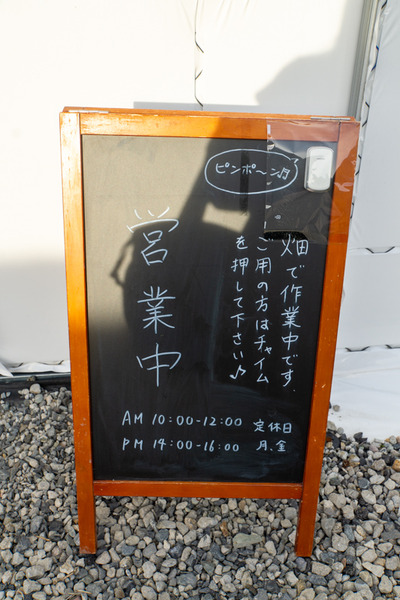 ピンポ〜ン♫
畑で作業中です.
ご用の方はチャイム
を押して下さい♪
営業中
AM 10:00-12:00 定休日
PM 14:00-16:00 月、金